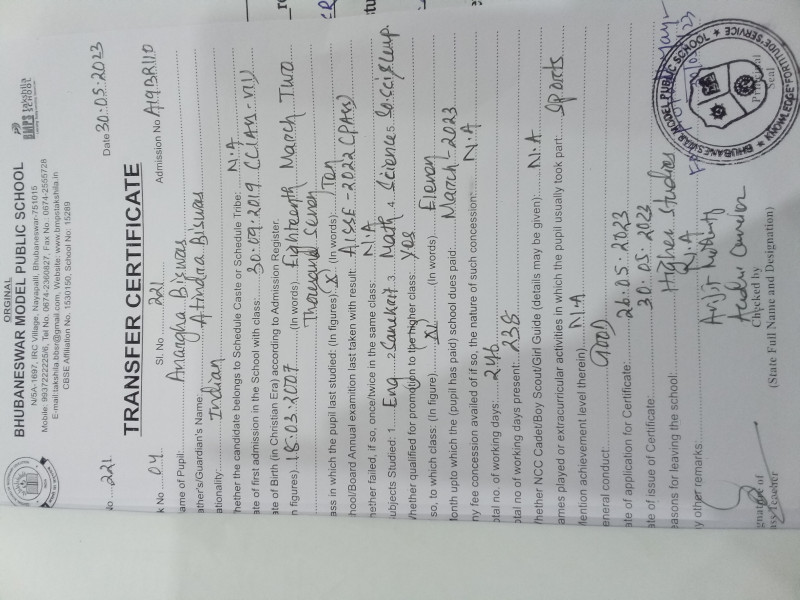 ORGINAL
BHUBANESWAR MODEL PUBLIC SCHOOL
N/5A-1697, IRC Village, Nayapalli, Bhubaneswar-751015
Mobile: 9937222225/6, Tel No. 0674-2360827, Fax No.: 0674-2555728
E-mail:takshila.bbsr@gmail.com, Website: www.bmpstakshila.in
CBSE Affiliation No. 1530150, School No: 15289
BMPS takshila SCHOOL
No. 221 Date 30.05.2023
TRANSFER CERTIFICATE
k No. 04 Sl. No 221 Admission No A19BR110
ame of Pupil: Anangha Biswas
ather's/Guardian's Name: Atindra Biswas
ationality: Indian
hether the candidate belongs to Schedule Caste or Schedule Tribe: N.A
ate of first admission in the School with class: 30.09.2019 (CLASS-VII)
ate of Birth (in Christian Era) according to Admission Register.
n figures) 18.03.2007 (In words) Eighteenth March Two
Thousand Seven
ass in which the pupil last studied: (In figures) (X) (In words) Ten
hool/Board Annual examition last taken with result: AISSE-2022 (PASS)
hether failed, if so, once/twice in the same class: N.A
ubjects Studied: 1. Eng 2. Sanskrit 3. Math 4. Science 5. So.Sci
hether qualified for promotion to the higher class: Yes
so, to which class: (In figure) (XI) (In words) Eleven
onth upto which the (pupil has paid) school dues paid: March-2023
ny fee concession availed of if so, the nature of such concession: N.A
otal no. of working days: 246
otal no of working days present: 238
hether NCC Cadet/Boy Scout/Girl Guide (details may be given): N.A
ames played or extracurricular activities in which the pupil usually took part: Sports
ention achievement level therein) N.A
eneral conduct: Good
ate of application for Certificate: 26.05.2023
ate of Issue of Certificate: 30.05.2023
easons for leaving the school: Higher Studies
y other remarks: N.A
gnature of
ass Teacher
Checked by
(State Full Name and Designation)
Principal
Seal
BHUBANESWAR MODEL PUBLIC SCHOOL
KNOWLEDGE•FORTITUDE•SERVICE